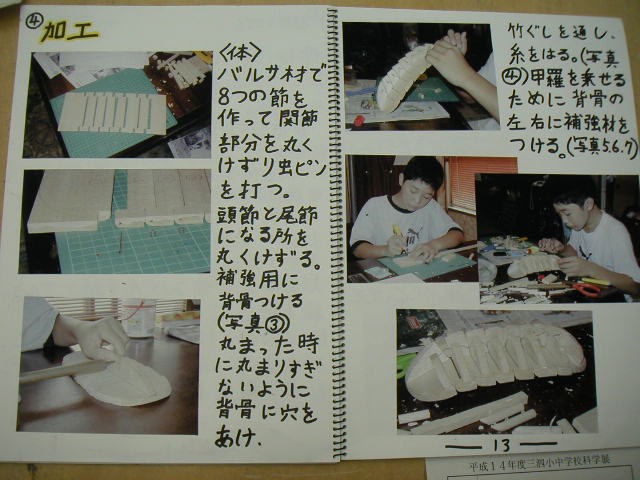 ④
加工
〈体〉
バルサ材で
8つの節を
作って関節
部分を丸く
けずり虫ピン
を打つ。
頭節と尾節
になる所を
丸くけずる。
補強用に
背骨つける
(写真③)
丸まった時
に丸まりすぎ
ないように
背骨に穴を
あけ、
竹ぐしを通し、
糸をはる。(写真
④)甲羅を乗せる
ために背骨の
左右に補強材を
つける。(写真5.6.7)
13
平成14年度三泗小中学校科学展